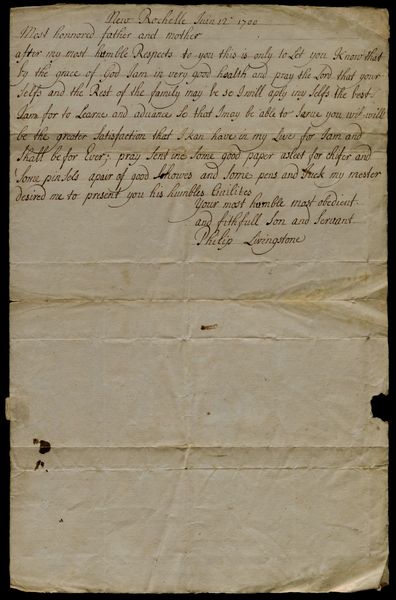 New Rochelle Juin 12th 1700
Most honnored father and mother
after my most homble Respects to you this is only to Let you Know that
by the grace of God I am in very good health and pray the Lord that your
Selfs and the Rest of the family may be so I will aply my Selfs the best
I am for to Learne and advance so that I may be able to Sarve you will
be the grater Satisfaction that I Kan have in my Live for I am and
Shall be for Ever; pray Sent me Some good paper a for and
Some pinsels a pair of good Showes and Some pens and my mester
desired me to present you his humbles Civilites
Your most homble most obedient
and fithfull Son and Servant
Philip Livingstone